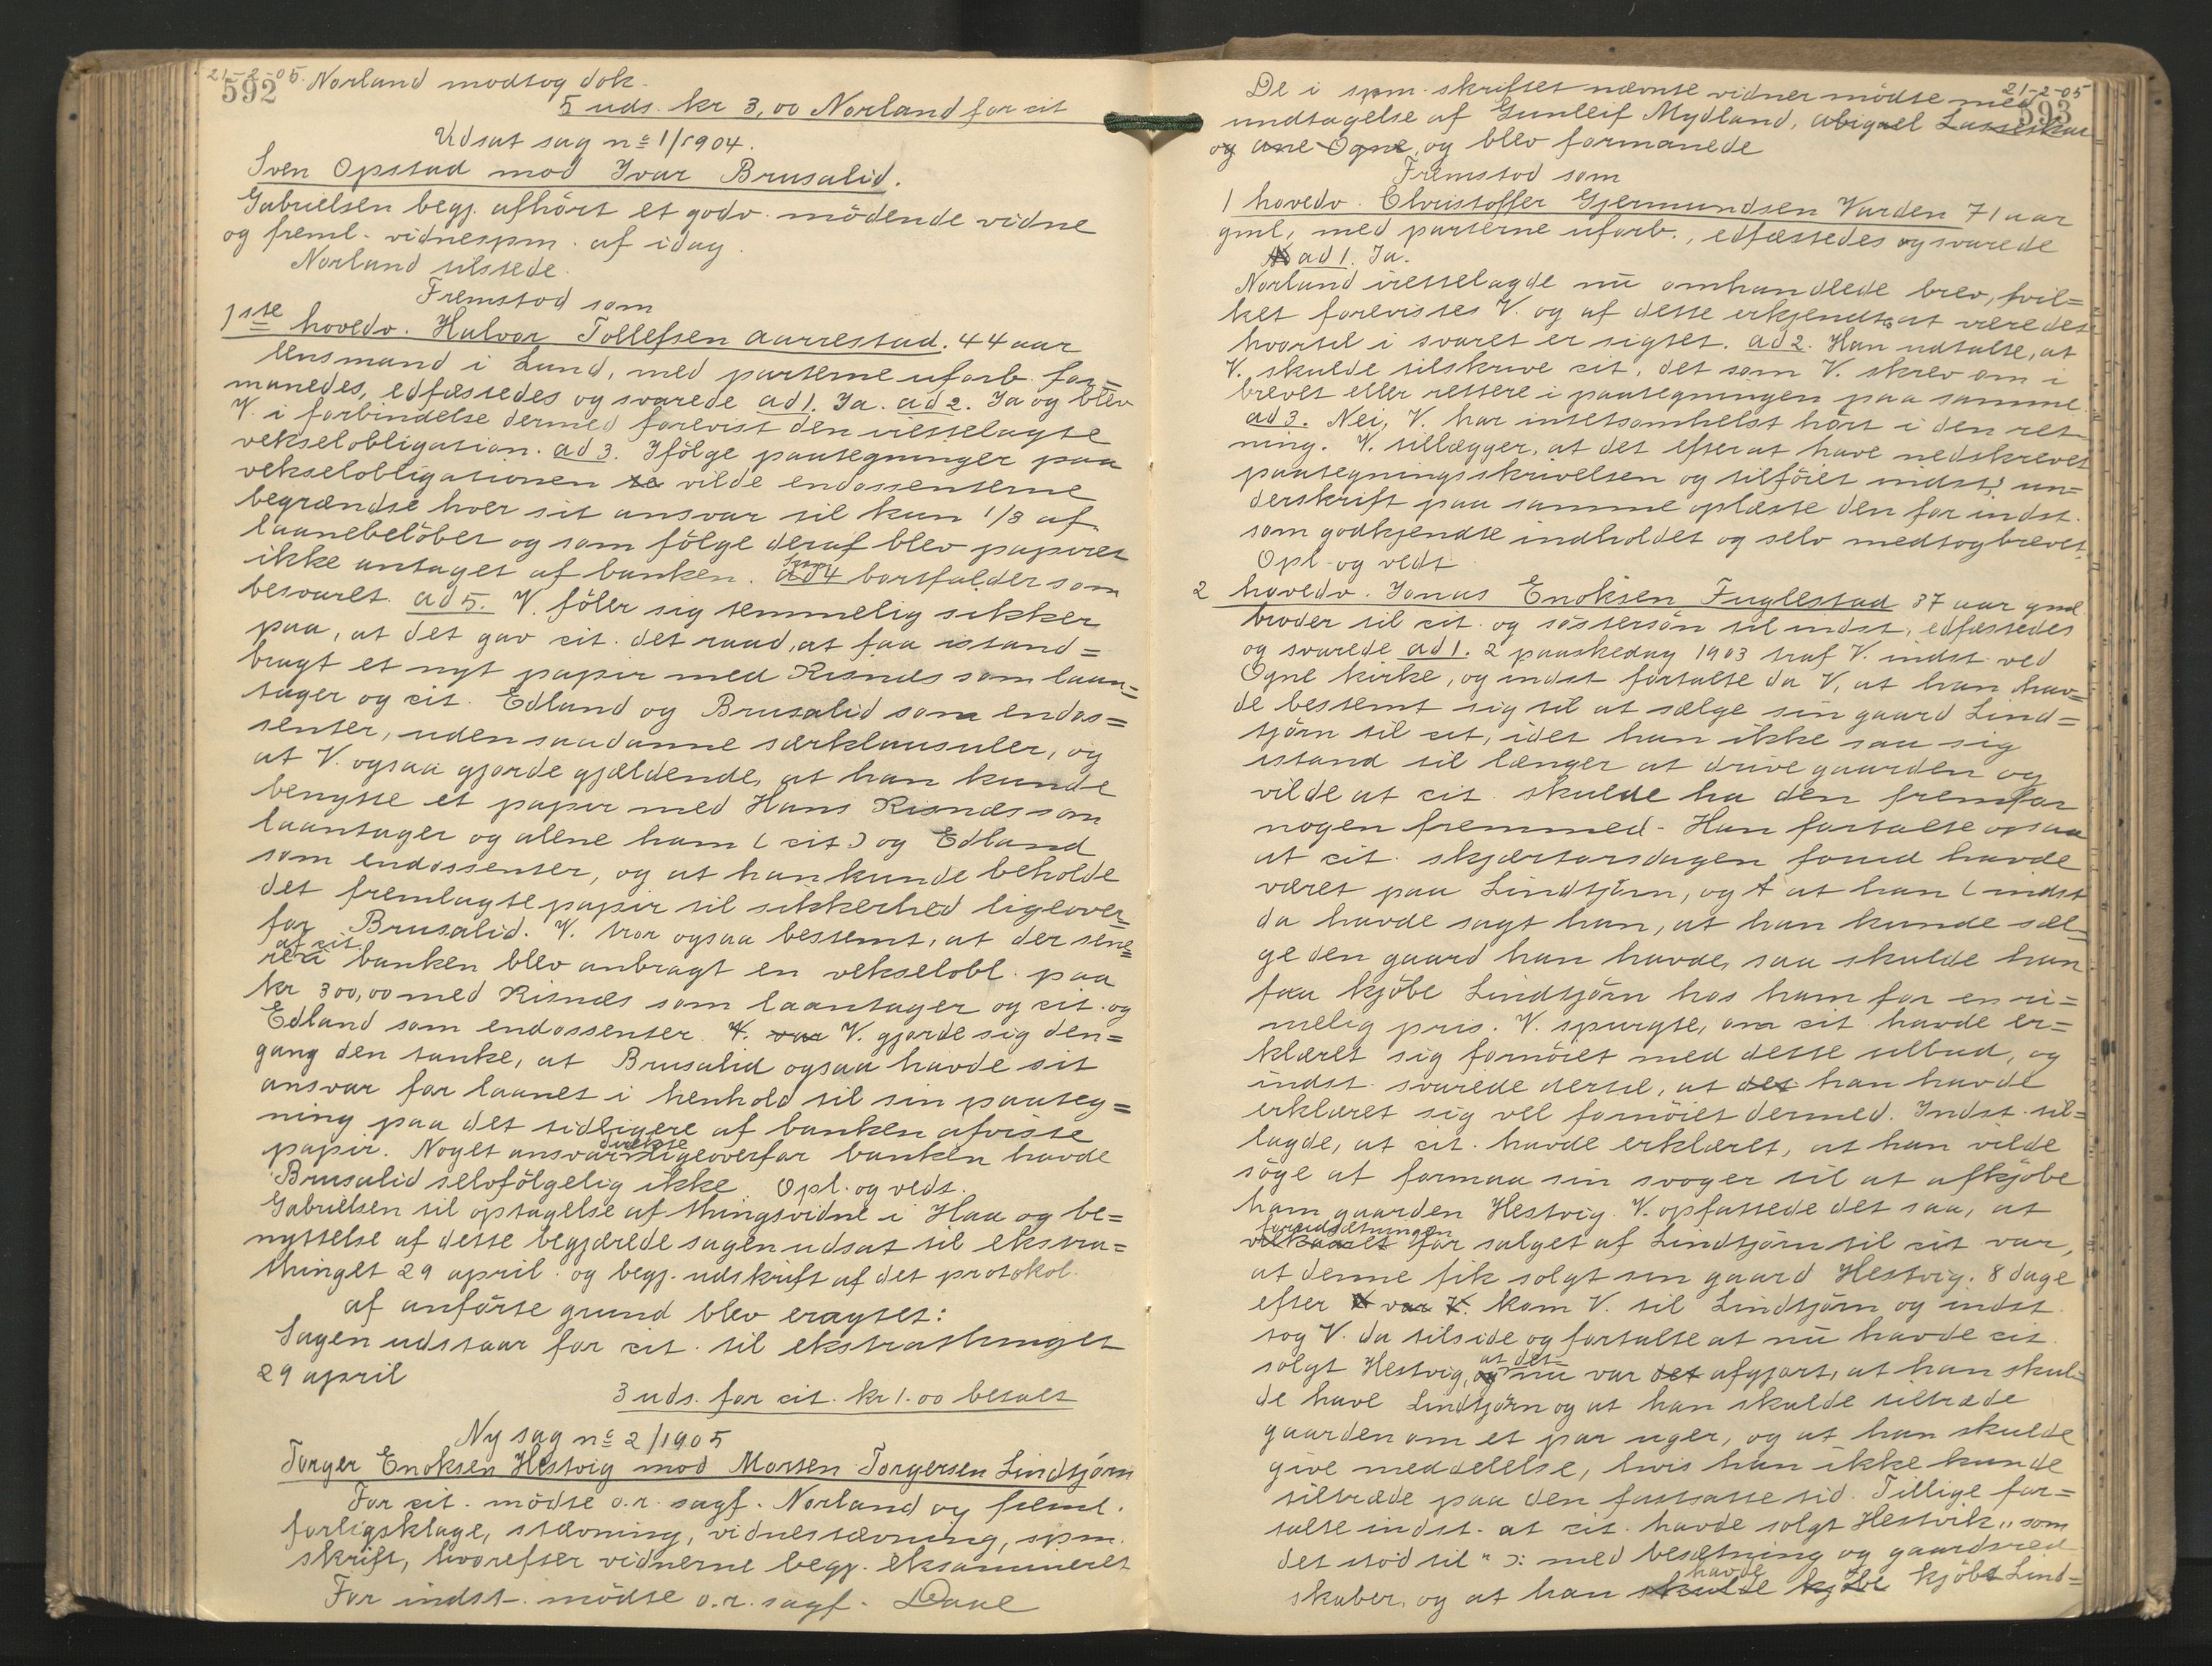 21-2-05. Norland modtog dok.
592
5 uds. kr 3,00 Norland for cit
Udsat sag nº 1/1904.
Sven Opstad mod Ivar Brusalid.
Gabrielsen begj. afhört et godv. mödende vidne
og freml. vidnespm. af idag.
Norland tilstede.
Fremstod som
1ste hovedv. Halvor Tollefsen Aarrestad. 44 aar
lensmand i Lund, med parterne uforb. for=
manedes, edfæstedes og svarede ad 1. Ja. ad 2. Ja og blev
V. i forbindelse dermed forevist den irettelagte
vekselobligation. ad 3. Ifölge paategninger paa
vekselobligationen vilde endossenterne
begrændse hver sit ansvar til kun 1/3 af
laanebelöbet og som fölge deraf blev papiret
ikke antaget af banken. spm 4 bortfalder som
besvaret. ad 5. V. föler sig temmelig sikker
paa, at det gav cit. det raad, at faa istand=
bragt et nyt papir med Risnæs som laan=
tager og cit. Edland og Brusalid som endos=
senter, uden saadanne særklausuler, og
at V. ogsaa gjorde gjældende, at han kunde
benytte et papir med Hans Risnæs som
laantager og alene ham (cit) og Edland
som endossenter, og at han kunde beholde
det fremlagte papir til sikkerhed ligeover=
for Brusalid. V. tror ogsaa bestemt, at der sene=
re af cit. i banken blev anbragt en vekselobl. paa
kr 300,00 med Risnæs som laantager og cit. og
Edland som endossenter. V. var V. gjorde sig den=
gang den tanke, at Brusalid ogsaa havde sit
ansvar for laanet i henhold til sin paateg=
ning paa det tidligere af banken afviste
papir. Noget ansvar direkte ligeoverfor banken havde
Brusalid selvfölgelig ikke. Opl. og vedt.
Gabrielsen til optagelse af thingsvidne i Haa og be=
nyttelse af dette begjærede sagen udsat til ekstra=
thinget 29 april. og begj. udskrift af det protokol.
af anförte grund blev eragtet:
Sagen udstaar for cit. til ekstrathinget
29 april
3 uds. for cit. kr 1.00 betalt
Ny sag nº 2/1905
Torger Enoksen Hestvig mod Morten Torgersen Lindtjörn
For cit. mödte o.r. sagf. Norland og freml.
forligsklage, stævning, vidnestævning, spm.
skrift, hvorefter vidnerne begj. eksammeret
For indst. mödte o.r. sagf. Daae
21-2-05
593
De i spm. skriftet nævnte vidner mödte med
undtagelse af Gunleif Mydland, Abigael
og Ane Ogne, og blev formanede
Fremstod som
1 hovedv. Christoffer Gjermundsen Varden 71 aar
gml, med parterne uforb., edfæstedes og svarede
ad 1. Ja.
Norland irettelagde nu omhandlede brev, hvil=
ket forevistes V. og af dette erkjendtes at være det
hvortil i svaret er sigtet. ad 2. Han udtalte, at
V. skulde tilskrive cit, det som V. skrev om i
brevet eller rettere i paategningen paa samme
ad 3. Nei, V. har intetsomhelst hört i den ret=
ning. V. tillægger, at det efterat have nedskrevet
paategningsskrivelsen og tilföiet indsts un=
derskrift paa samme oplæste den for indst.
som godkjendte indholdet og selv medtog brevet.
Opl. og vedt
2 hovedv. Jonas Enoksen Fuglestad 37 aar gml
broder til cit. og söstersön til indst, edfæstedes
og svarede ad 1. 2 paaskedag 1903 traf V. indst. ved
Ogne kirke, og indst fortalte da V, at han hav=
de bestemt sig til at sælge sin gaard Lind=
tjörn til cit, idet han ikke saa sig
istand til længer at drive gaarden og
vilde at cit. skulde ha den fremfor
nogen fremmed. Han fortalte ogsaa
at cit. skjærtorsdagen forud havde
været paa Lindtjörn, og at han (indst
da havde sagt han, at han kunde sæl=
ge den gaard han havde, saa skulde han
faa kjöbe Lindtjörn hos ham for en ri=
melig pris. V. spurgte, om cit. havde er=
klæret sig fornöiet med dette tilbud, og
indst. svarede dertil, at det han havde
erklæret sig vel fornöiet dermed. Indst. til=
lagde, at cit. havde erklæret, at han vilde
söge at formaa sin svoger til at afkjöbe
ham gaarden Hestvig. V. opfattede det saa, at
forudsætningen
vilkaaret for salget af Lindtjörn til cit var,
at denne fik solgt sin gaard Hestvig. 8 dage
efter V var V. kom V. til Lindtjörn og indst.
tog V. da tilside og fortalte at nu havde cit.
solgt Hestvig, og at det nu var det afgjort, at han skul=
de have Lindtjörn og at han skulde tiltræde
gaarden om et par uger, og at han skulde
give meddelelse, hvis han ikke kunde
tiltræde paa den fastsatte tid. Tillige for=
talte indst. at cit. havde solgt Hestvik „som
det stod til“ ɔ: med besætning og gaardsred
havde
skaber, og at han skulde kjöbe kjöbt Lind=